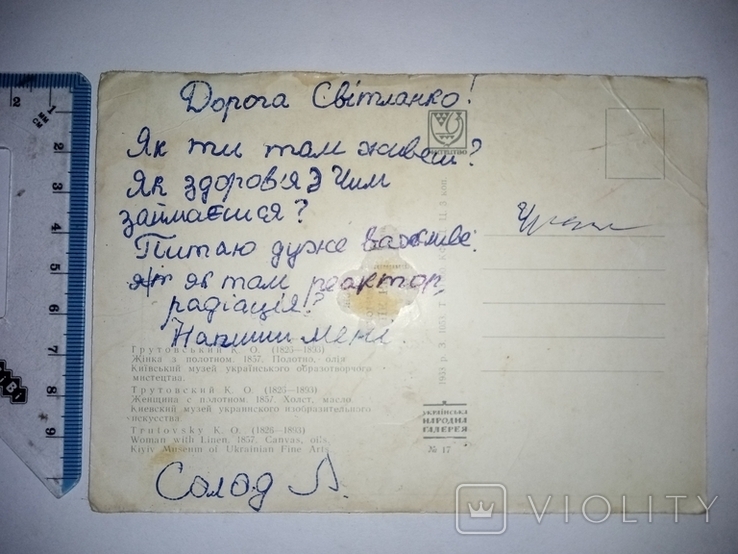 Дорога Світланко!
Як ти там живеш?
Як здоров'я? Чим
займаєшся?
Питаю дуже важливе:
як там реактор,
радіація?
Напиши мені.
Трутовський К. О. (1825—1893)
Жінка з полотном. 1857. Полотно, олія
Київський музей українського образотворчого
мистецтва.
Трутовский К. О. (1825—1893)
Женщина с полотном. 1857. Холст, масло
Киевский музей украинского изобразительного
искусства.
Trutovsky K. O. (1826—1893)
Woman with Linen. 1857. Canvas, oils.
Kiyiv Museum of Ukrainian Fine Arts
Солод А.
МИСТЕЦТВО
УКРАЇНСЬКА
НАРОДНА
ГАЛЕРЕЯ
№ 17
VIOLITY